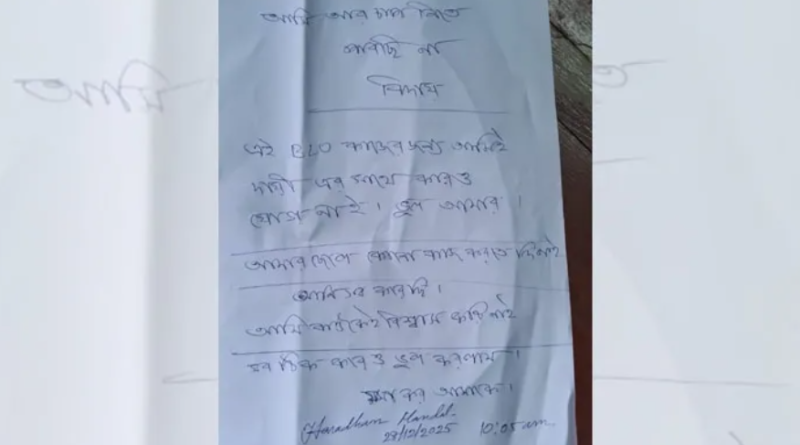 আমি আর চাপ নিতে
পারছি না
বিদায়
এই BLO কাজের জন্য আমিই
দায়ী এর সাথে কারও
যোগ নাই। ভুল আমার।
আমার ছেলে কোনো কাজ করতে দিই নাই
আমি সব করছি।
আমি কাউকেই বিশ্বাস করি নাই
সব ঠিক করেও ভুল করলাম।
ক্ষমা কর আমাকে।
Haradhan Mandal
28/12/2025 10:05 am